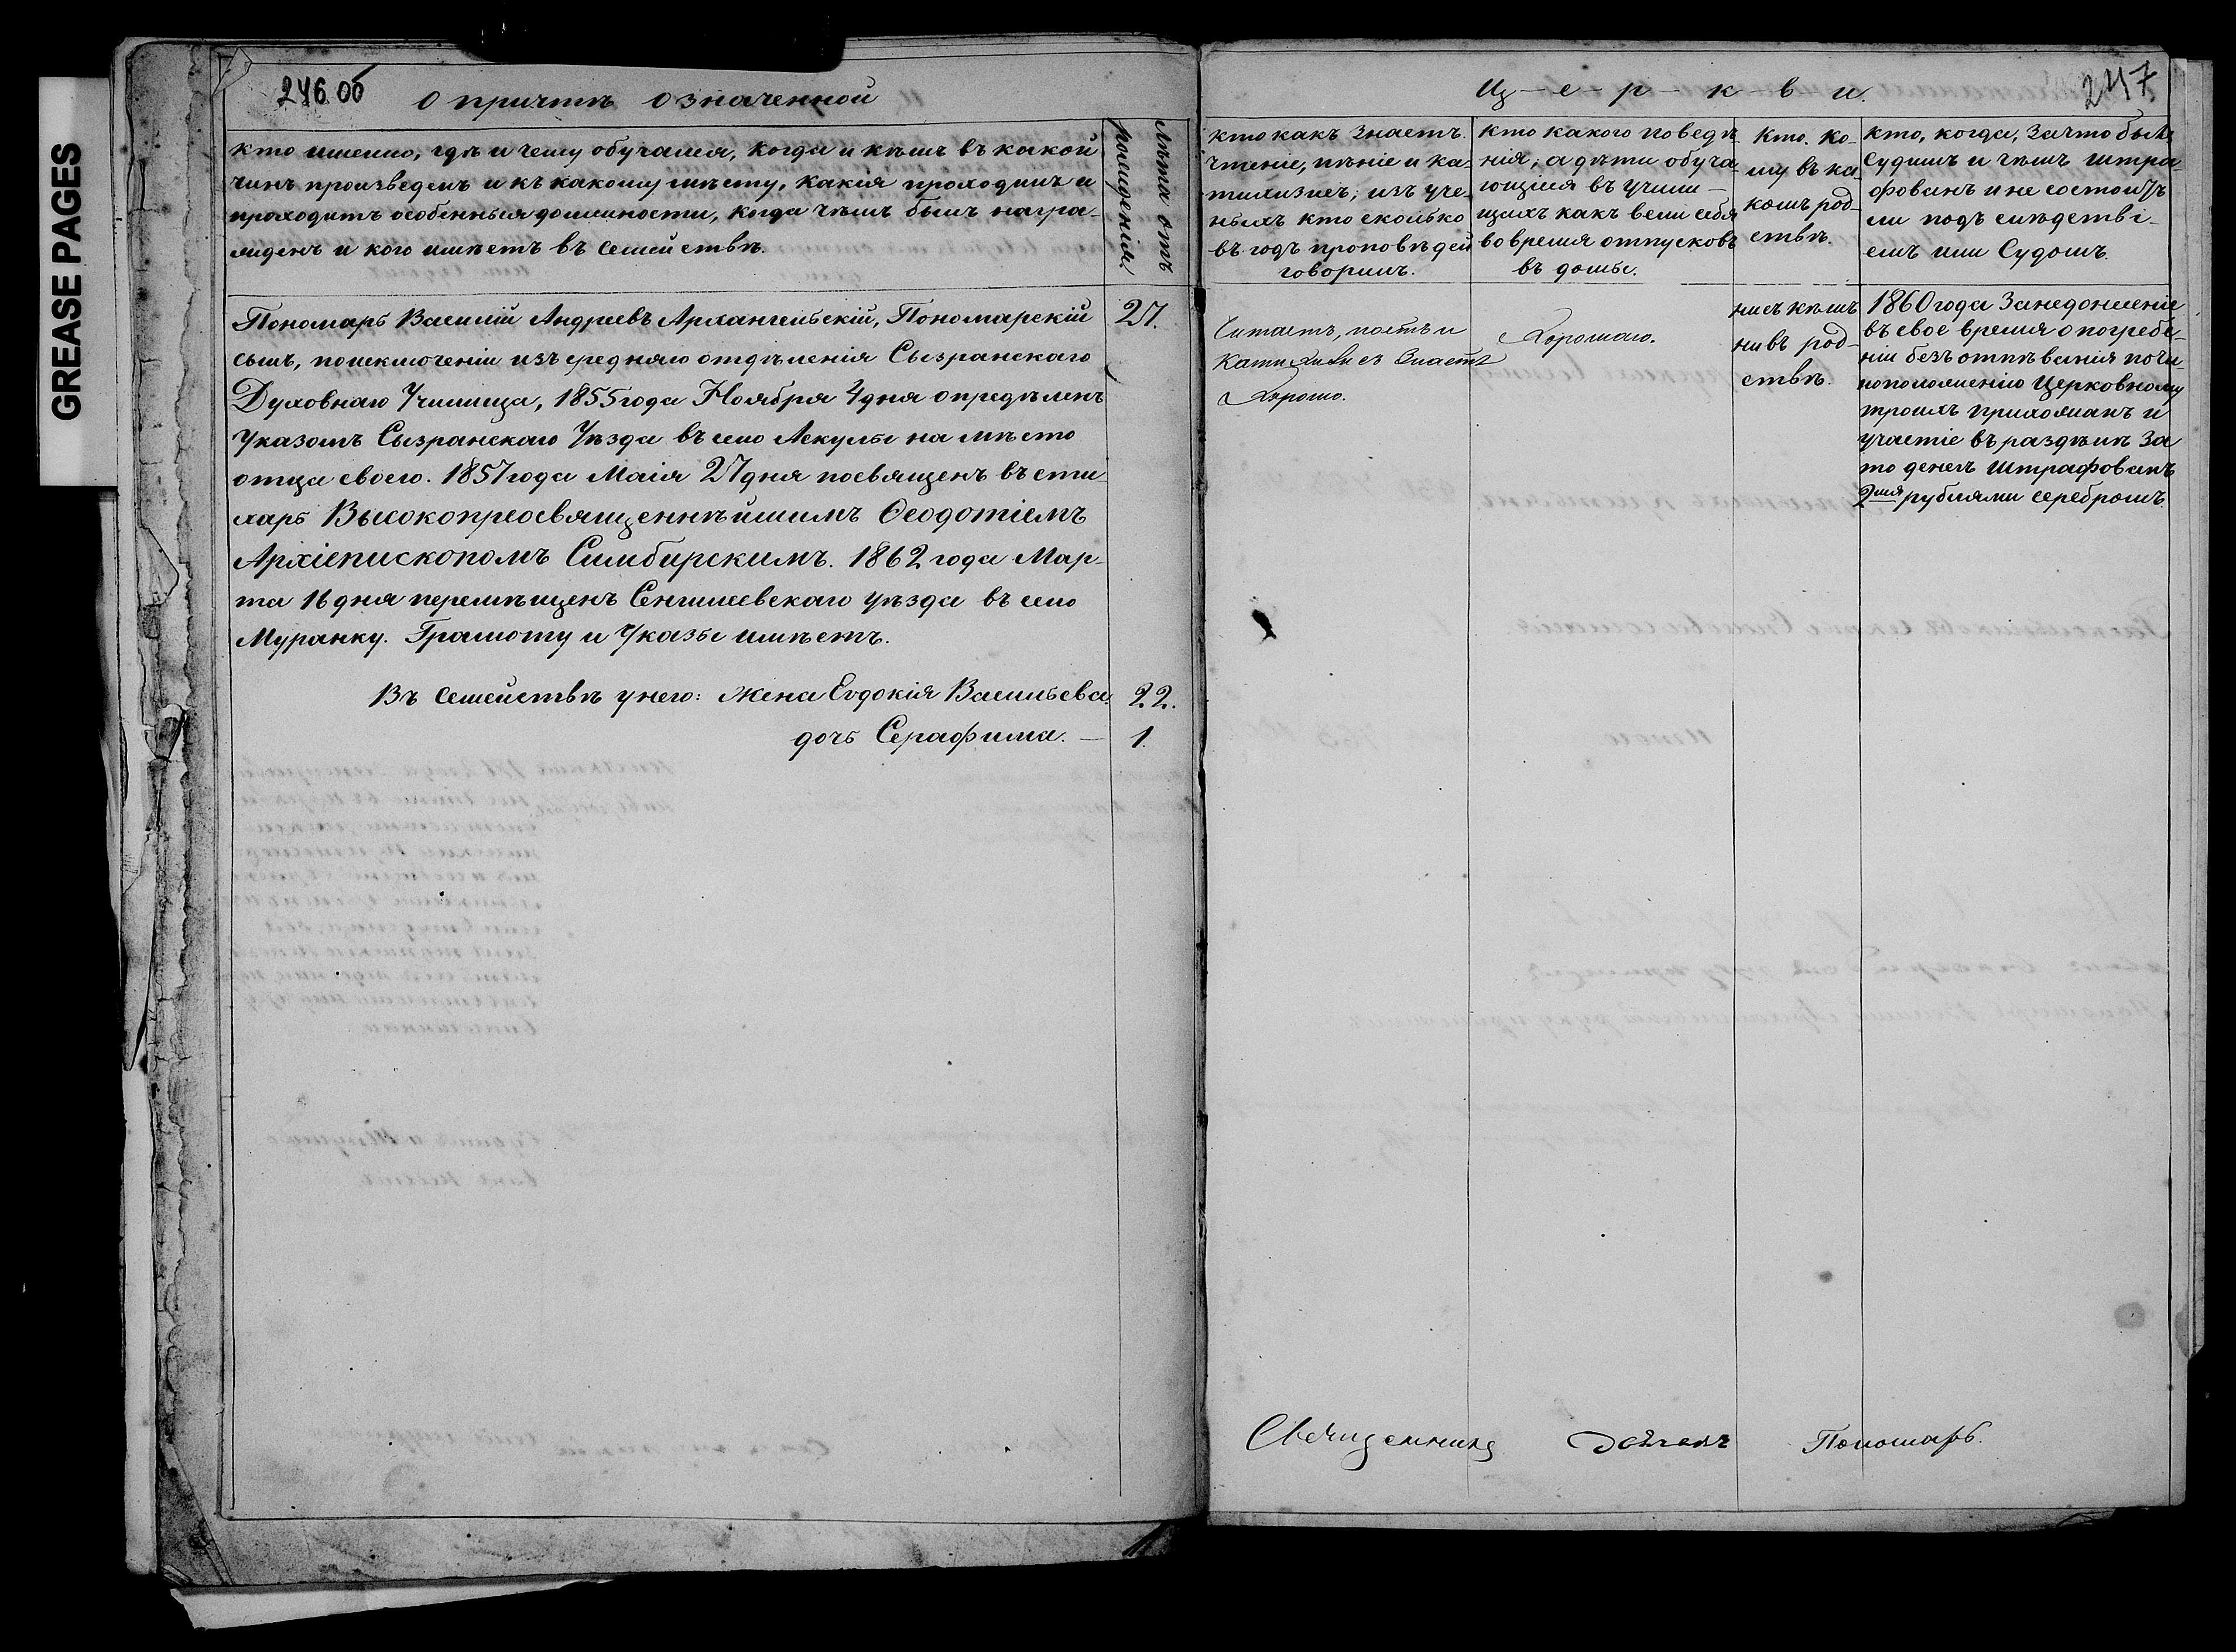 GREASE PAGES
246 об
О причтѣ означенной
кто именно, гдѣ и чему обучался, когда и кѣмъ въ какой
чинъ произведенъ и къ какому мѣсту, какія проходилъ и
проходитъ особенныя должности, когда чѣмъ былъ награ-
жденъ и кого имѣетъ въ семействѣ.
Лѣта отъ
рожденія.
Пономарь Василій Андреевъ Архангельскій, Пономарскій
27.
сынъ, по исключеніи изъ средняго отдѣленія Сызранскаго
Духовнаго Училища, 1855 года Ноября 4 дня опредѣленъ
Указомъ Сызранскаго Уѣзда въ село Акулы на мѣсто
отца своего. 1857 года Маія 27 дня посвященъ въ сти
харь Высокопреосвященнѣйшимъ Ѳеодотіемъ
Архіепископомъ Симбирскимъ. 1862 года Мар-
та 16 дня перемѣщенъ Сенгилеевскаго уѣзда въ село
Муранку. Грамоту и Указы имѣетъ.
Въ семействѣ у него: жена Евдокія Васильева.
22.
дочь Серафима. —
1.
Ц-е-р-к-в-и.
247
кто какъ знаетъ.
чтеніе, пѣніе и ка-
тихизисъ; изъ уче-
ныхъ кто сколько
въ годъ проповѣдей
говорилъ.
кто какого поведѣ
нія, а дѣти обуча-
ющіяся въ учили-
щахъ какъ вели себя
во время отпусковъ
въ домы.
Кто. ко-
му въ ка-
комъ род-
ствѣ.
кто, когда, за что былъ
судимъ и чѣмъ штра-
фованъ и не состоитъ
ли подъ слѣдстві-
емъ или Судомъ.
Читаетъ, поетъ и
Катихизисъ знаетъ
Хорошо.
Хорошаго.
ни съ кѣмъ
ни въ род-
ствѣ.
1860 года за недонесеніе
въ свое время о погребе-
ніи безъ отпѣванія по чи-
ноположенію Церковному
троихъ прихожанъ и
участіе въ раздѣлѣ за
то денегъ штрафованъ
2мя рублями серебромъ.
Священникъ
Дьячекъ
Пономарь.